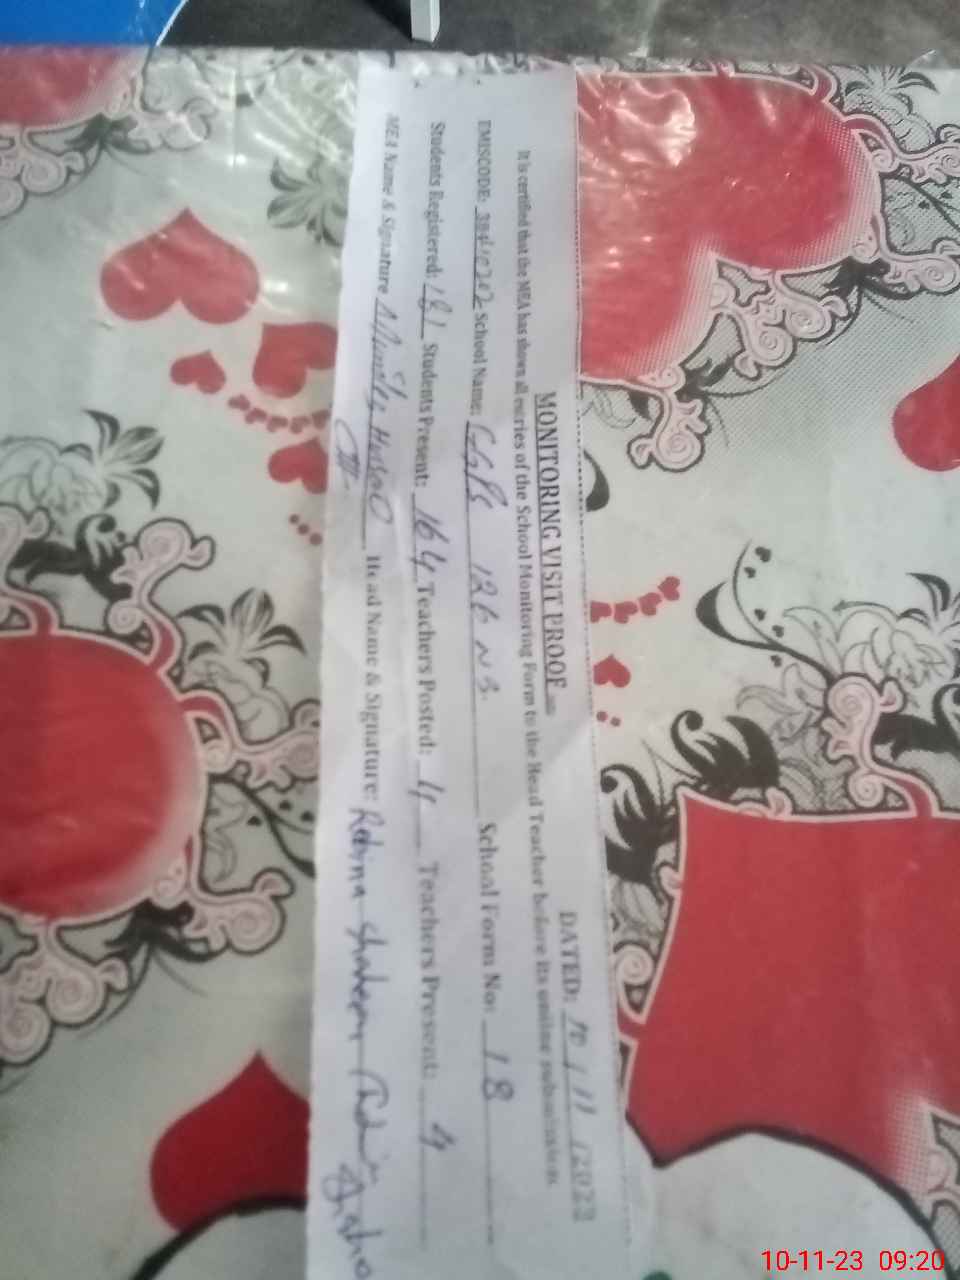 MONITORING VISIT PROOF
DATED: 10/11/2023
It is certified that the MEA has shown all entries of the School Monitoring Form to the Head Teacher before its online submission.
EMISCODE: School Name: GGPS 126 NB School Form No: 18
Students Registered: 181 Students Present: 164 Teachers Posted: 4 Teachers Present: 4
MEA Name & Signature Head Name & Signature: Robina Shaheen
10-11-23 09:20